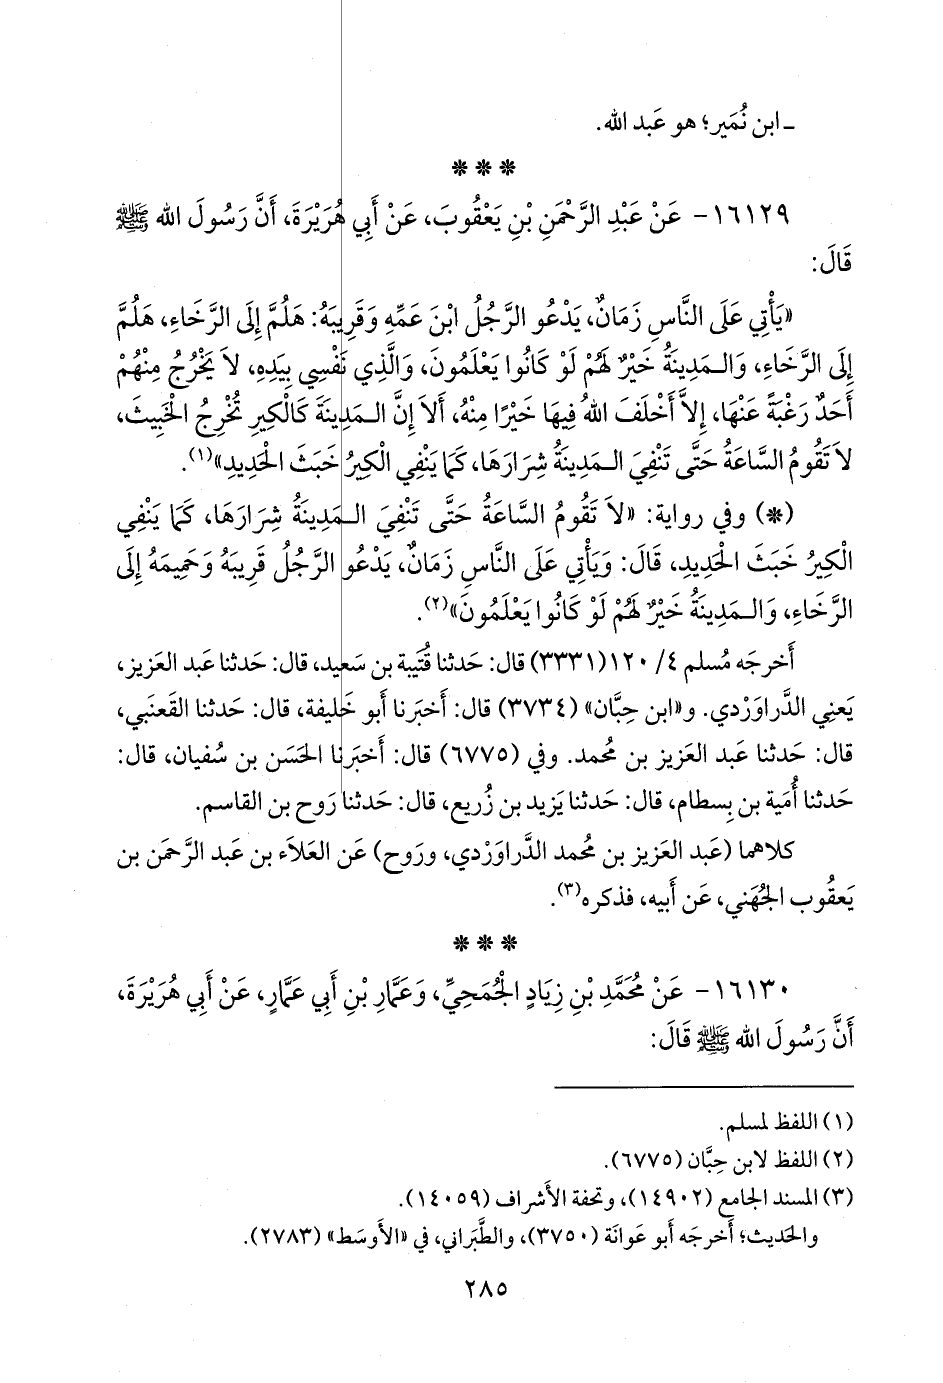 ـ ابن نُمَير؛ هو عَبد الله.
* * *
١٦١٢٩- عَنْ عَبْدِ الرَّحْمَنِ بْنِ يَعْقُوبَ، عَنْ أَبِي هُرَيْرَةَ، أَنَّ رَسُولَ الله ﷺ
قَالَ:
«يَأْتِي عَلَى النَّاسِ زَمَانٌ، يَدْعُو الرَّجُلُ ابْنَ عَمِّهِ وَقَرِيبَهُ: هَلُمَّ إِلَى الرَّخَاءِ، هَلُمَّ
إِلَى الرَّخَاءِ، وَالـمَدِينَةُ خَيْرٌ لَهُمْ لَوْ كَانُوا يَعْلَمُونَ، وَالَّذِي نَفْسِي بِيَدِهِ، لاَ يَخْرُجُ مِنْهُمْ
أَحَدٌ رَغْبَةً عَنْهَا، إِلاَّ أَخْلَفَ اللهُ فِيهَا خَيْرًا مِنْهُ، أَلاَ إِنَّ الـمَدِينَةَ كَالْكِيرِ تُخْرِجُ الْخَبِيثَ،
لاَ تَقُومُ السَّاعَةُ حَتَّى تَنْفِيَ الـمَدِينَةُ شِرَارَهَا، كَمَا يَنْفِي الْكِيرُ خَبَثَ الْحَدِيدِ»(١).
(*) وفي رواية: «لاَ تَقُومُ السَّاعَةُ حَتَّى تَنْفِيَ الـمَدِينَةُ شِرَارَهَا، كَمَا يَنْفِي
الْكِيرُ خَبَثَ الْحَدِيدِ، قَالَ: وَيَأْتِي عَلَى النَّاسِ زَمَانٌ، يَدْعُو الرَّجُلُ قَرِيبَهُ وَحَمِيمَهُ إِلَى
الرَّخَاءِ، وَالـمَدِينَةُ خَيْرٌ لَهُمْ لَوْ كَانُوا يَعْلَمُونَ»(٢).
أَخرجَه مُسلم ٤/ ١٢٠(٣٣٣١) قال: حَدثنا قُتَيبة بن سَعيد، قال: حَدثنا عَبد العَزيز،
يَعنِي الدَّراوَرْدي. و«ابن حِبَّان» (٣٧٣٤) قال: أَخبَرنا أَبو خَليفة، قال: حَدثنا القَعنَبي،
قال: حَدثنا عَبد العَزيز بن مُحمد. وفي (٦٧٧٥) قال: أَخبَرنا الحَسَن بن سُفيان، قال:
حَدثنا أُمَية بن بِسطام، قال: حَدثنا يَزيد بن زُريع، قال: حَدثنا رَوح بن القاسم.
كلاهما (عَبد العَزيز بن مُحمد الدَّراوَرْدي، ورَوح) عَن العَلاَء بن عَبد الرَّحمَن بن
يَعقُوب الجُهَني، عَن أَبيه، فذكره(٣).
* * *
١٦١٣٠- عَنْ مُحَمَّدِ بْنِ زِيَادٍ الْجُمَحِيِّ، وَعَمَّارِ بْنِ أَبِي عَمَّارٍ، عَنْ أَبِي هُرَيْرَةَ،
أَنَّ رَسُولَ الله ﷺ قَالَ:
(١) اللفظ لمسلم.
(٢) اللفظ لابن حِبَّان (٦٧٧٥).
(٣) المسند الجامع (١٤٩٠٢)، وتحفة الأَشراف (١٤٠٥٩).
والحَديث؛ أَخرجَه أَبو عَوانَة (٣٧٥٠)، والطَّبَراني، في «الأَوسَط» (٢٧٨٣).
٢٨٥